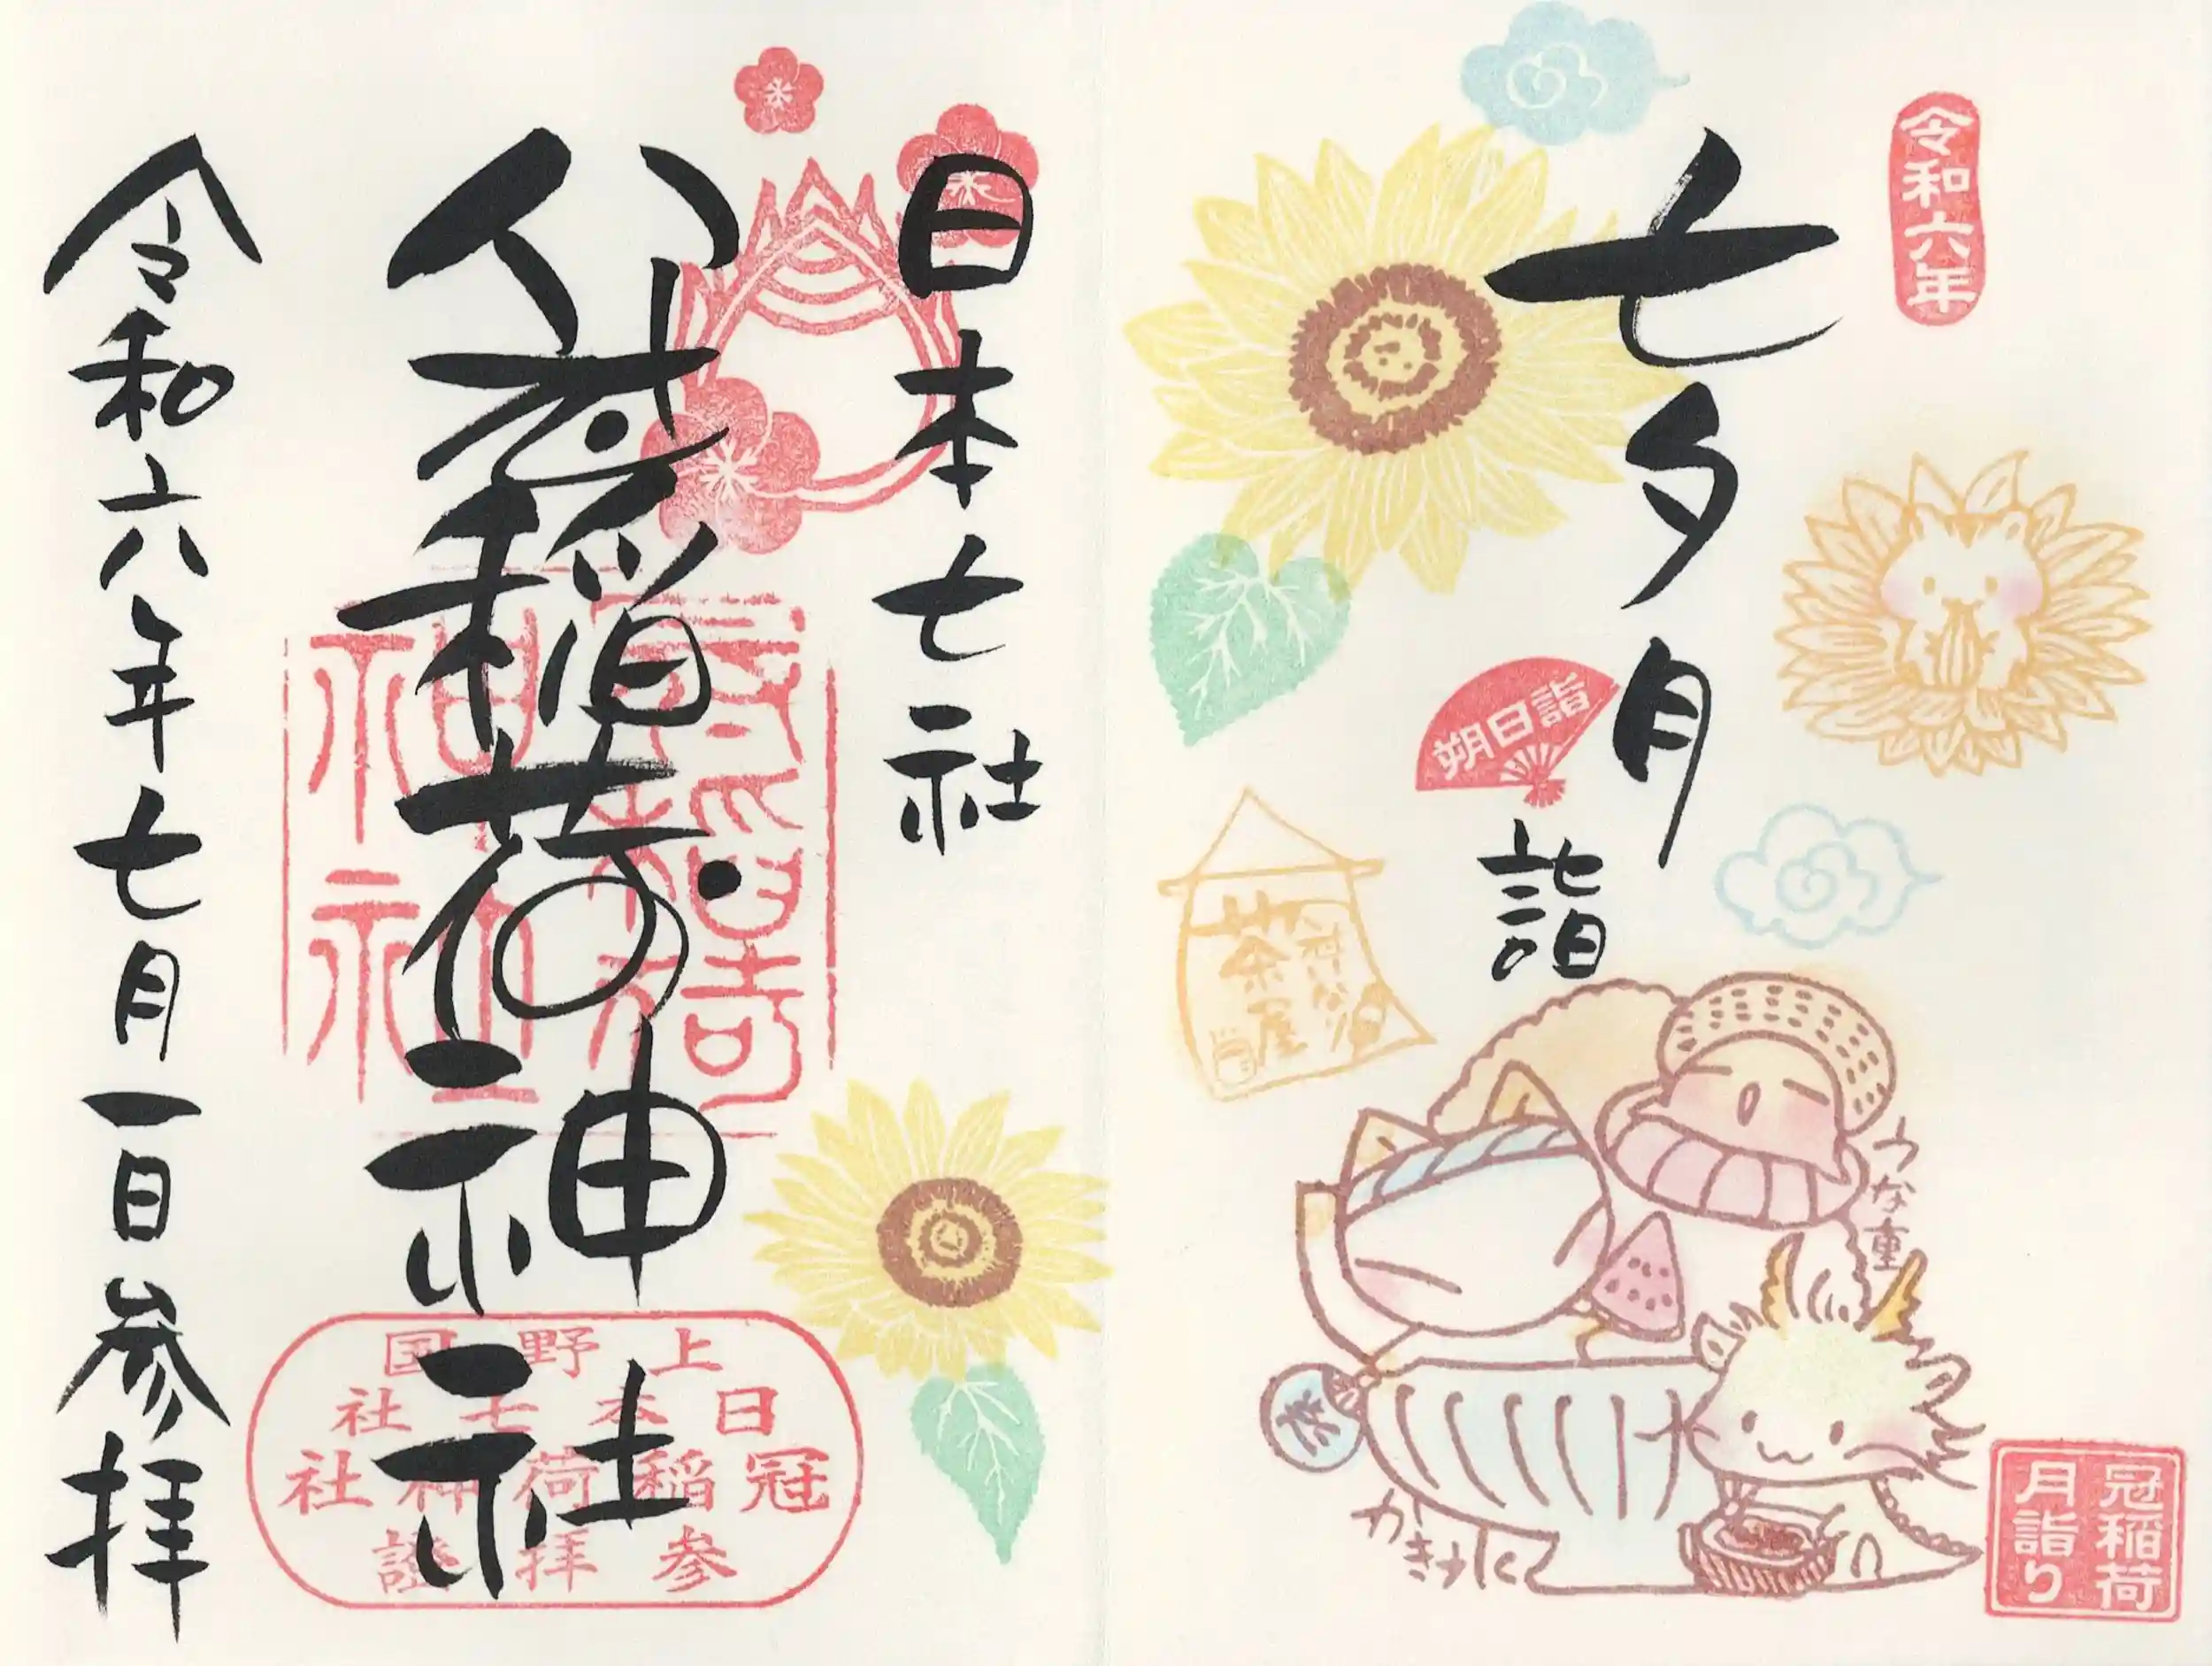 令和六年
七夕月
詣
朔日詣
茶屋
うな重
冠稲荷
月詣り
日本七社
稲荷神社
上野国
日本七社
冠稲荷神社
参拝證
令和六年七月一日参拝